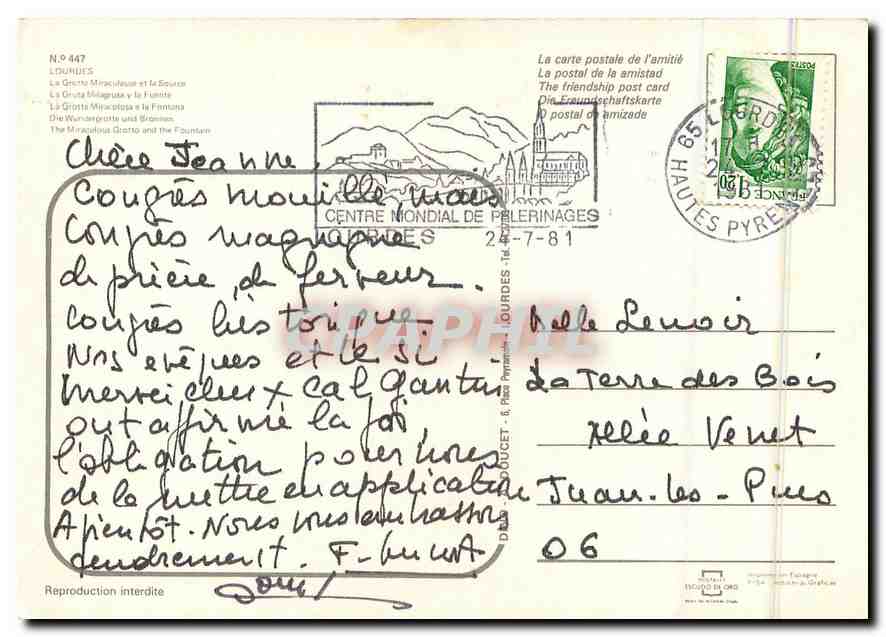 N.º 447
LOURDES
La Grotte Miraculeuse et la Source
La Gruta Milagrosa y la Fuente
La Grotta Miracolosa e la Fontana
Die Wundergrotte und Bronnen
The Miraculous Grotto and the Fountain
La carte postale de l'amitié
La postal de la amistad
The friendship post card
Die Freundschaftskarte
O postal de amizade
POSTES
1,20
FRANCE
65 LOURDES
HAUTES PYRENEES
CENTRE MONDIAL DE PELERINAGES
LOURDES 24-7-81
Chère Jeanne,
Congrès mouillé, mais
Congrès magnifique
de prière, de ferveur.
Congrès historique
Nos évêques et le si
merveilleux cal Gantin
ont affirmé la foi,
l'obligation pour nous
de la mettre en application
A bientôt. Nous vous embrassons
tendrement.
DOUCET - 6, Place Peyramale - LOURDES - Tél.
CPAPHIL
Melle Lenoir
La Terre des Bois
Allée Venet
Juan-les-Pins
06
Reproduction interdite
ESCUDO DE ORO